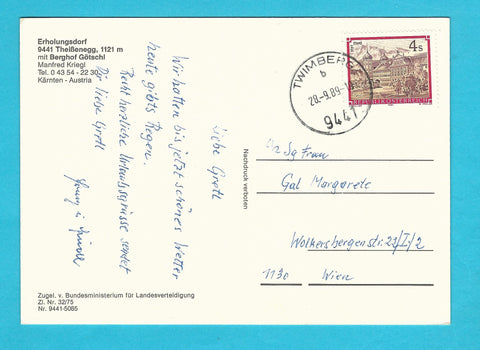 Erholungsdorf
9441 Theißenegg, 1121 m
mit Berghof Götschl
Manfred Kriegl
Tel. 0 43 54 - 22 30
Kärnten - Austria
Liebe Gretl
Wir hatten bis jetzt schönes Wetter
heute gibts Regen.
Recht herzliche Urlaubsgrüsse sendet
Dir liebe Gretl
Zugel. v. Bundesministerium für Landesverteidigung
Zl. Nr. 32/75
Nr. 9441-5085
Nachdruck verboten
TWIMBERG
b
20.-9.89-
9441
4s
REPUBLIK ÖSTERREICH
Sg Frau
Gal Margarete
Wolkersbergenstr. 23/I/2
1130 Wien